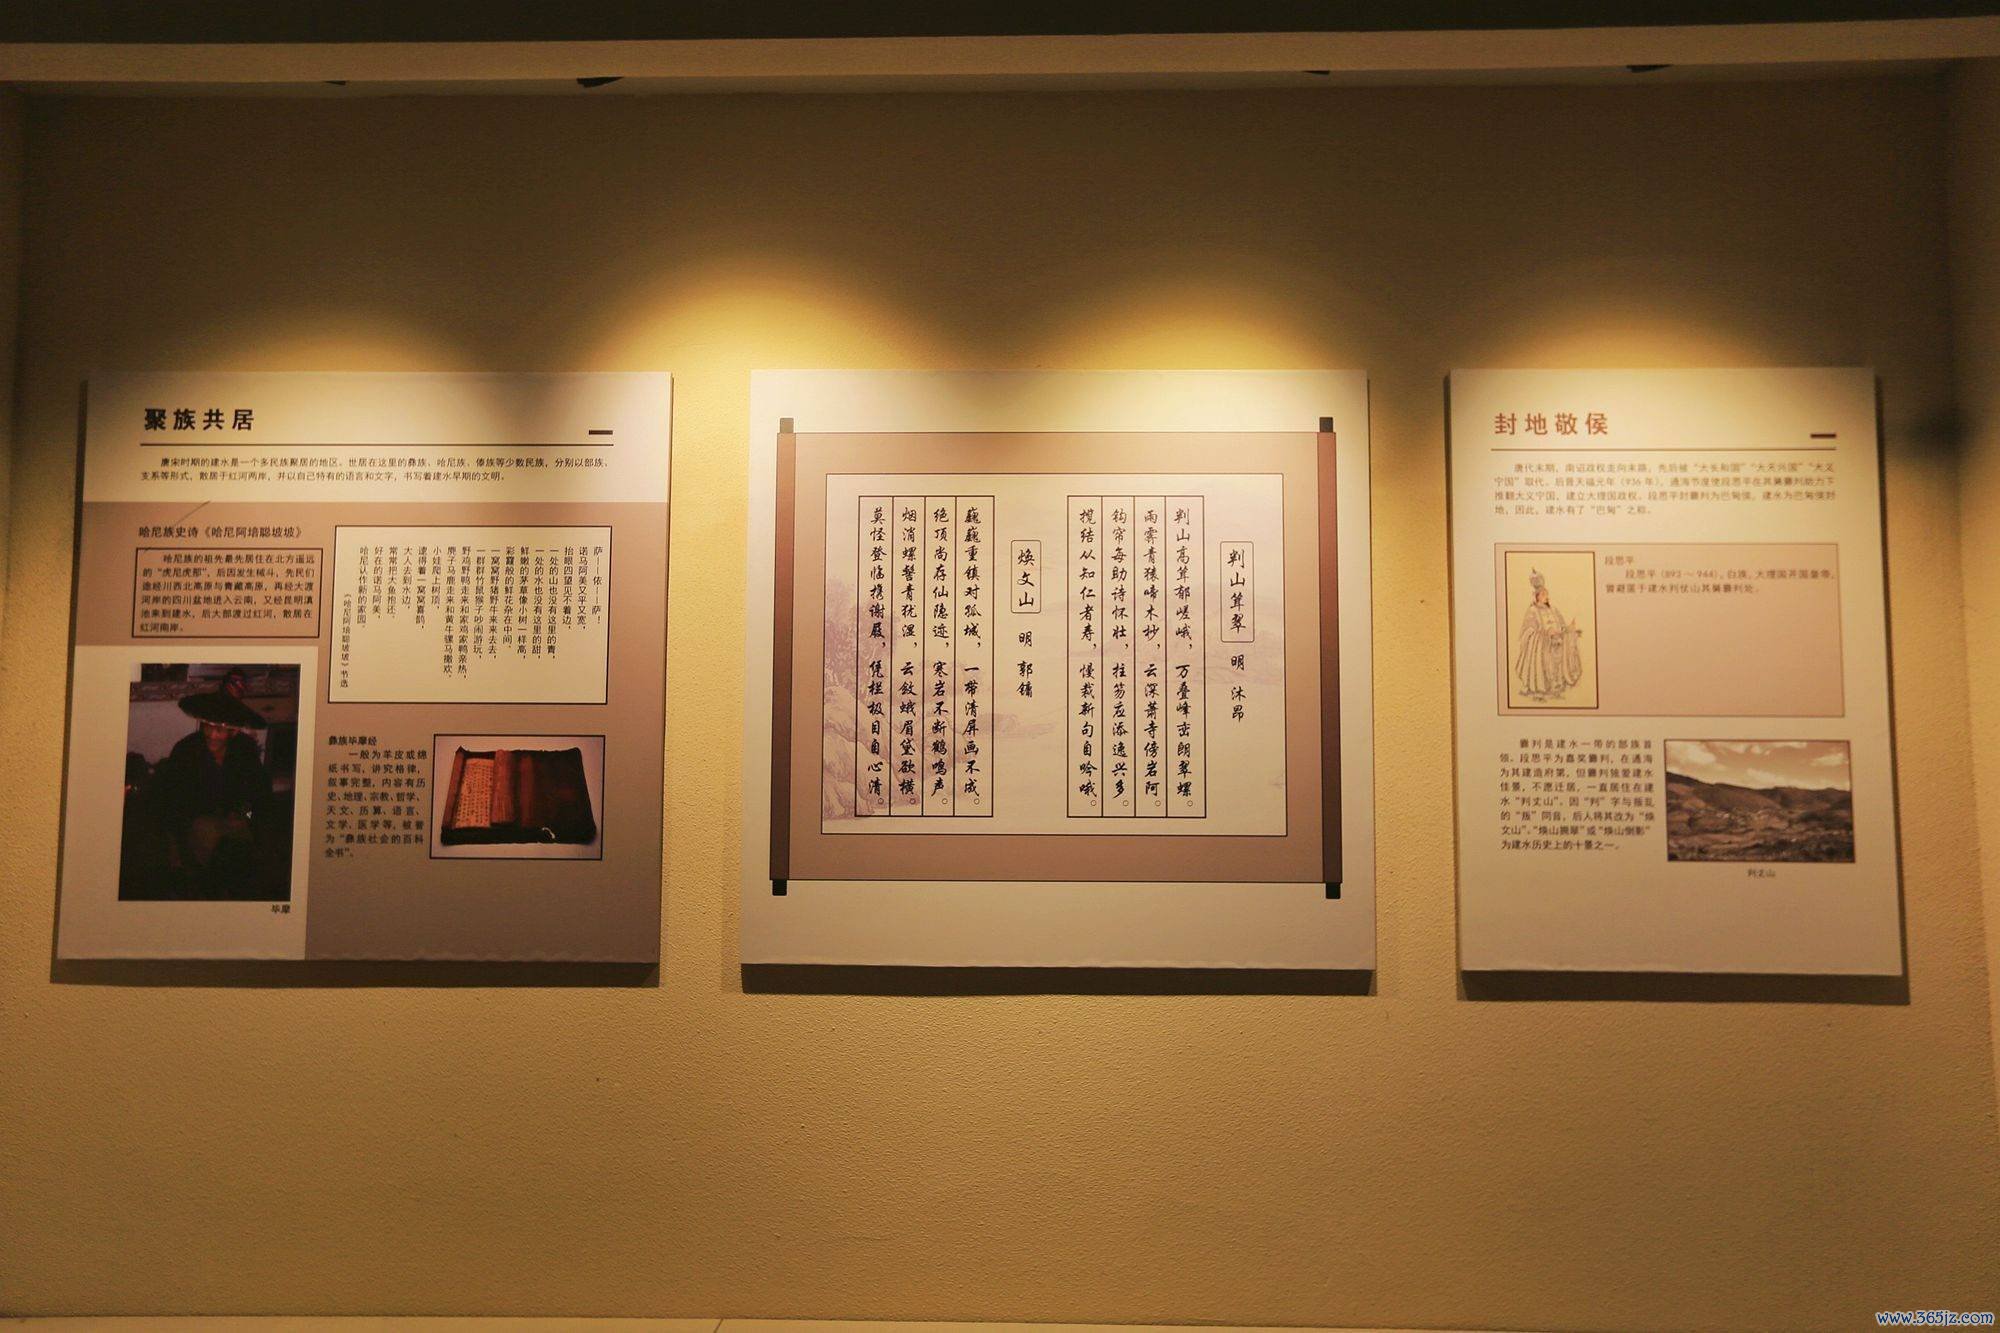 聚族共居
唐宋时期的建水是一个多民族聚居的地区。世居在这里的彝族、哈尼族、傣族等少数民族，分别以部族、
支系等形式，散居于红河两岸，并以自己特有的语言和文字，书写着建水早期的文明。
哈尼族史诗《哈尼阿培聪坡坡》
哈尼族的祖先最先居住在北方遥远
的“虎尼虎那”，后因发生械斗，先民们
途经川西北高原与青藏高原，再经大渡
河岸的四川盆地进入云南，又经昆明滇
池来到建水，后大部渡过红河，散居在
红河南岸。
萨——依——萨！
诺马阿美又平又宽，
抬眼四望见不着边，
一处的山也没有这里的青，
一处的水也没有这里的甜，
鲜嫩的茅草像小树一样高，
彩霞般的鲜花杂在中间。
一窝窝野猪野牛来来去去，
一群群竹鼠猴子吵闹游玩，
野鸡野鸭走来和家鸡家鸭亲热，
麂子马鹿走来和黄牛骡马撒欢。
小娃爬上树顶，
逮得着一窝窝喜鹊，
大人去到水边，
常常把大鱼抱还。
好在的诺马阿美，
哈尼认作新的家园。
《哈尼阿培聪坡坡》书选
毕摩
彝族毕摩经
一般为羊皮或绵
纸书写，讲究格律，
叙事完整，内容有历
史、地理、宗教、哲学、
天文、历算、语言、
文学、医学等，被誉
为“彝族社会的百科
全书”。
判山耸翠
明 沐昂
判山高耸郁嵯峨，万叠峰峦朗翠螺。
雨霁青猿啼木杪，云深萧寺傍岩阿。
钩帘每助诗怀壮，拄笏应添逸兴多。
揽结从知仁者寿，慢裁新句自吟哦。
焕文山
明 郭镛
巍巍重镇对孤城，一带清屏画不成。
绝顶尚存仙隐迹，寒岩不断鹤鸣声。
烟消螺髻青犹湿，云敛蛾眉黛欲横。
莫怪登临携谢屐，凭栏极目自心清。
封地敬侯
唐代末期，南诏政权走向末路，先后被“大长和国”“大天兴国”“大义
宁国”取代。后晋天福元年（936年），通海节度使段思平在其舅爨判助力下
推翻大义宁国，建立大理国政权。段思平封爨判为巴甸侯，建水为巴甸侯封
地，因此，建水有了“巴甸”之称。
段思平
段思平（893～944），白族，大理国开国皇帝，
曾避匿于建水判仗山其舅爨判处。
爨判是建水一带的部族首
领。段思平为嘉奖爨判，在通海
为其建造府第，但爨判独爱建水
佳景，不愿迁居，一直居住在建
水“判丈山”。因“判”字与叛乱
的“叛”同音，后人将其改为“焕
文山”。“焕山拥翠”或“焕山倒影”
为建水历史上的十景之一。
判丈山
www.365jz.com